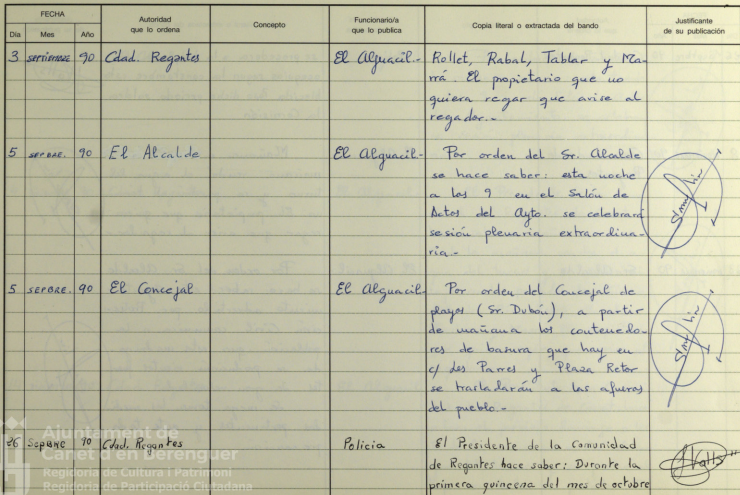 FECHA
Dia Mes Año
Autoridad
que lo ordena
Concepto
Funcionario/a
que lo publica
Copia literal o extractada del bando
Justificante
de su publicación
3 septiembre 90 Cdad. Regantes El Alguacil.- Rollet, Rabal, Tablar y Ma-
rrá. El propietario que no
quiera regar que avise al
regador.-
5 sepbre. 90 El Alcalde El Alguacil- Por orden del Sr. Alcalde
se hace saber: esta noche
a las 9 en el Salón de
Actos del Ayto. se celebrará
sesión plenaria extraordina-
ria.-
5 sepbre. 90 El Concejal El Alguacil- Por orden del Concejal de
playas (Sr. Dubón), a partir
de mañana los contenedo-
res de basura que hay en
c/ les Parres y Plaza Retor
se trasladarán a las afueras
del pueblo.-
26 Sepbre 90 Cdad. Regantes Policia El Presidente de la Comunidad
de Regantes hace saber: Durante la
primera quincena del mes de octubre
Valls
Ajuntament de
Canet d'en Berenguer
Regidoria de Cultura i Patrimoni
Regidoria de Participació Ciutadana